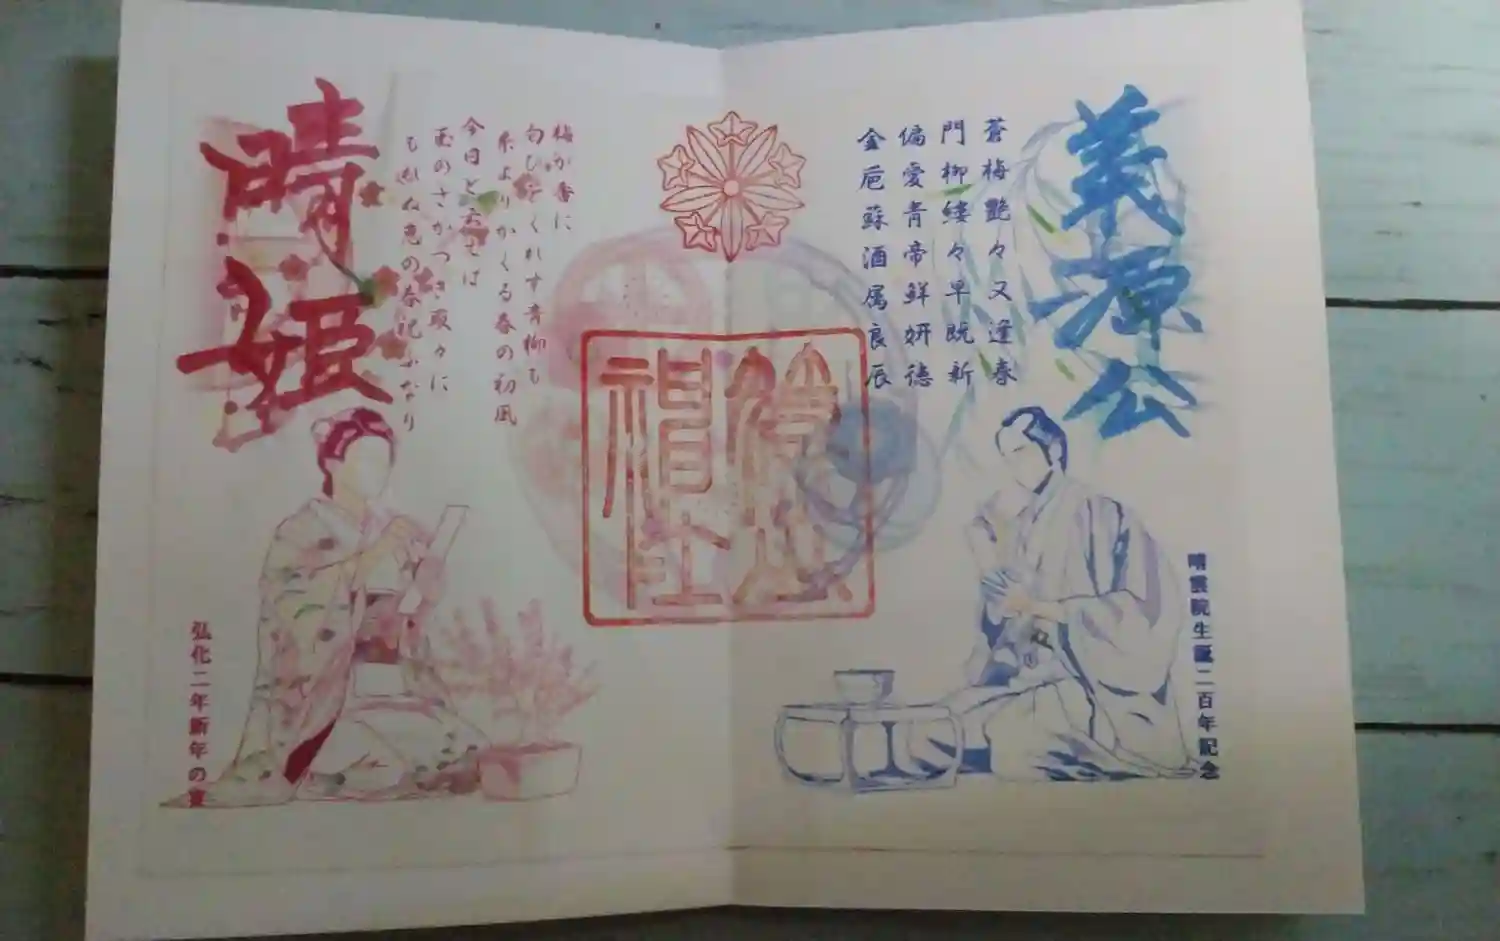 義源公
蒼梅艶々又逢春
門柳縷々早既新
偏愛青帝鮮妍徳
金巵蘇酒属良辰
晴雲院生誕二百年記念
梅が香に
匂ひをくれす青柳も
糸よりかくる春の初風
今日と云へば
のさかつき取々に
の春祝ふなり
晴姫
弘化二年新年の宴